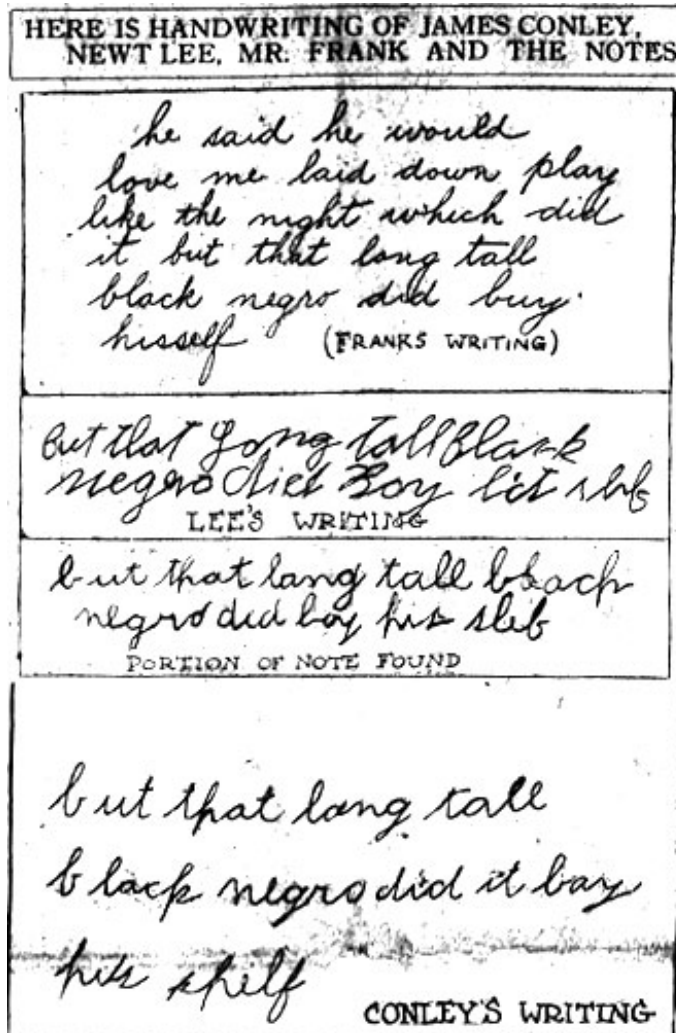 HERE IS HANDWRITING OF JAMES CONLEY,
NEWT LEE, MR. FRANK AND THE NOTES
he said he would
love me laid down play
like the night which did
it but that long tall
black negro did buy
hisself (FRANKS WRITING)
but that long tall black
negro did boy his slef
LEE'S WRITING
but that lang tall black
negro did boy his sleb
PORTION OF NOTE FOUND
but that long tall
black negro did it bay
his shelf
CONLEY'S WRITING